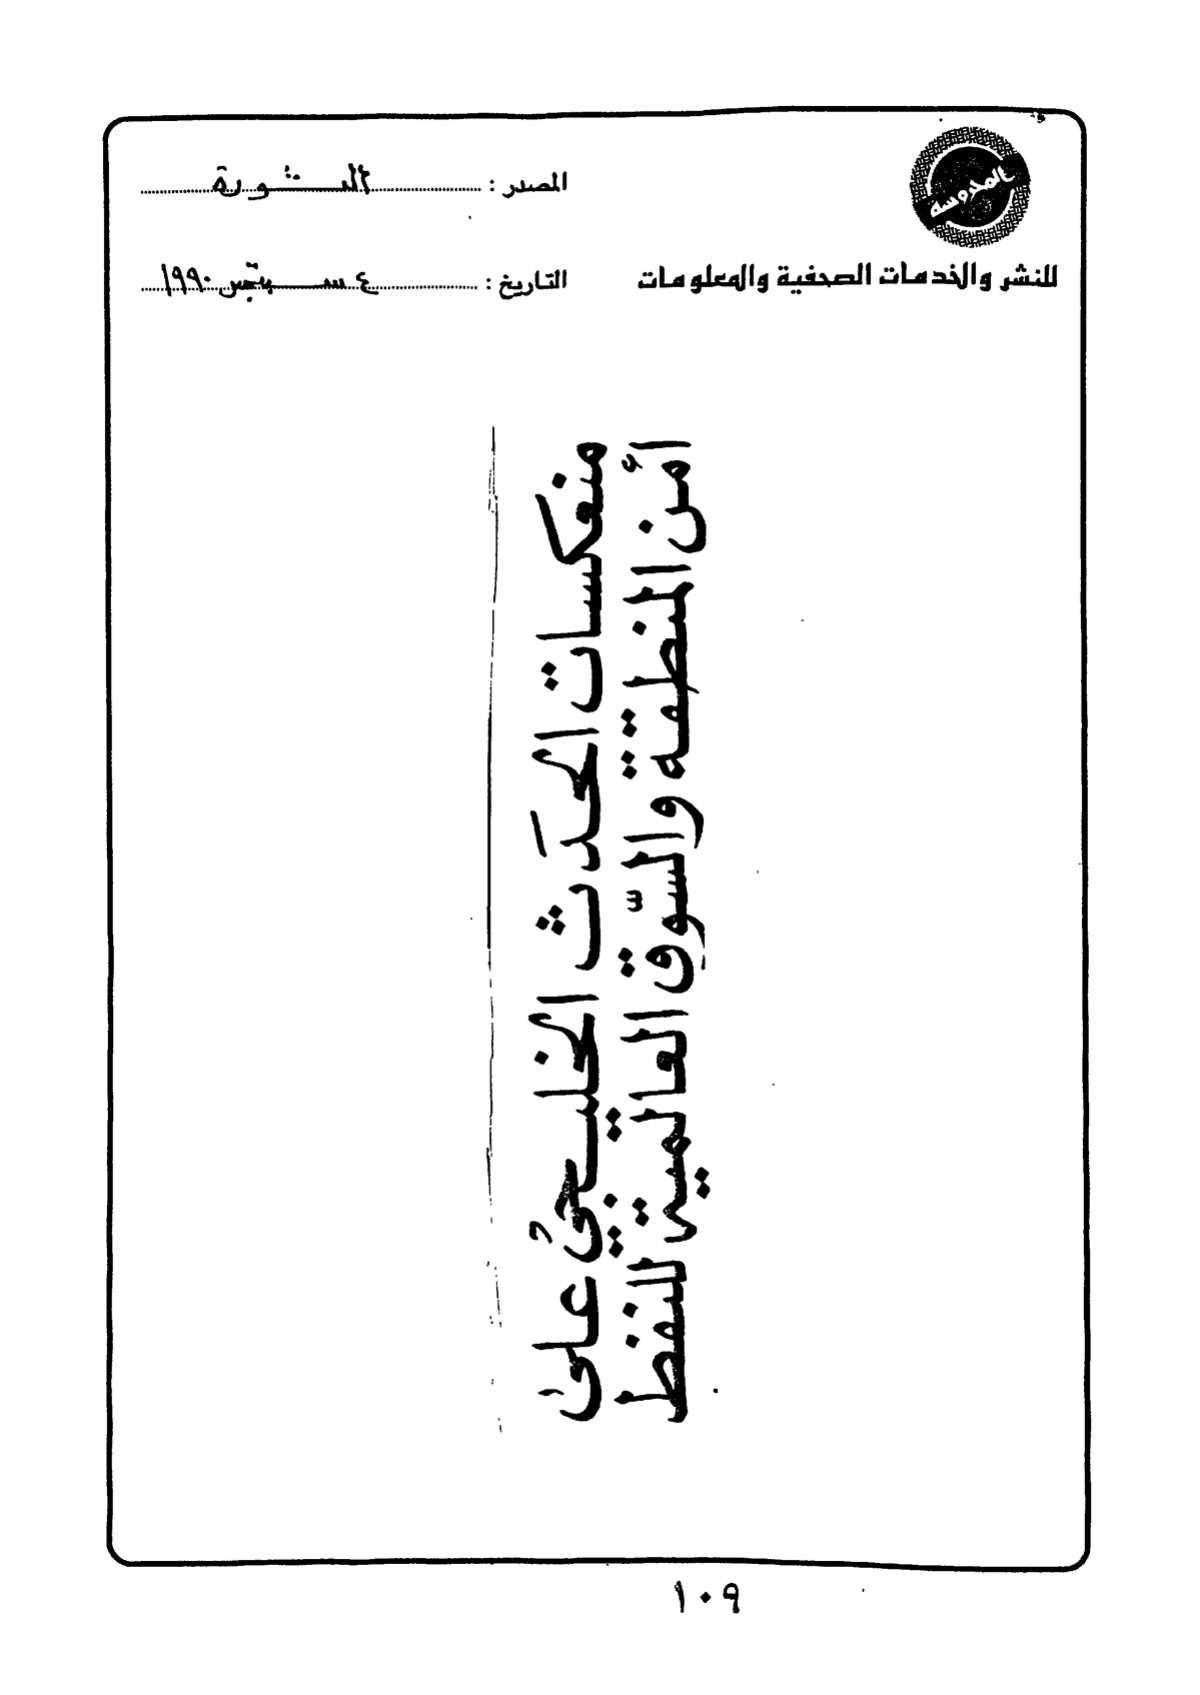 المحروسة
للنشر والخدمات الصحفية والمعلومات
المصدر : الثورة
التاريخ : ٤ سبتمبر ١٩٩٠
منعكسات الحدث الخليجي على
أمن المنطقة والسّوق العالمية للنفط
١٠٩